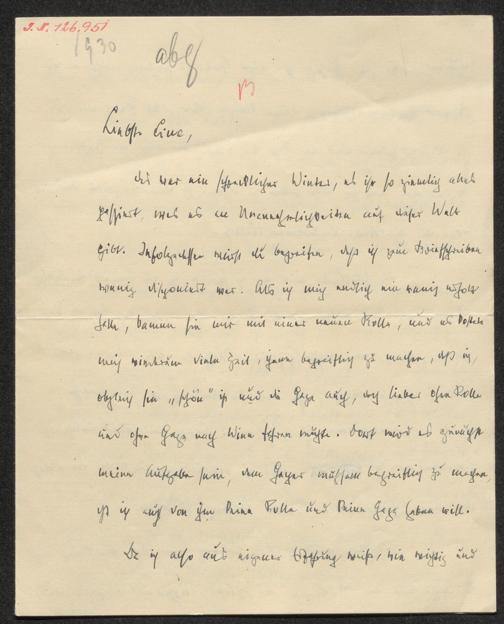 J.N. 126.951
1930
abg
Liebste Line,
das war ein schrecklicher Winter, es ist so ziemlich alles
passiert, was es an Unannehmlichkeiten auf dieser Welt
gibt. Infolgedessen wirst du begreifen, dass ich zum Briefschreiben
wenig disponiert war. Als ich mich endlich ein wenig erholt
hatte, kamen sie mir mit einer neuen Rolle, und es kostete
mich wiederum viele Zeit, ihnen begreiflich zu machen, dass ich,
obgleich sie „schön" ist und die Gage auch, doch lieber ohne Rolle
und ohne Gage nach Wien fahren möchte. Dort wird es zunächst
meine Aufgabe sein, dem Geyer mühsam begreiflich zu machen,
dass ich auch von ihm keine Rolle und keine Gage haben will.
Da ich also aus eigener Erfahrung weiß, wie wichtig und